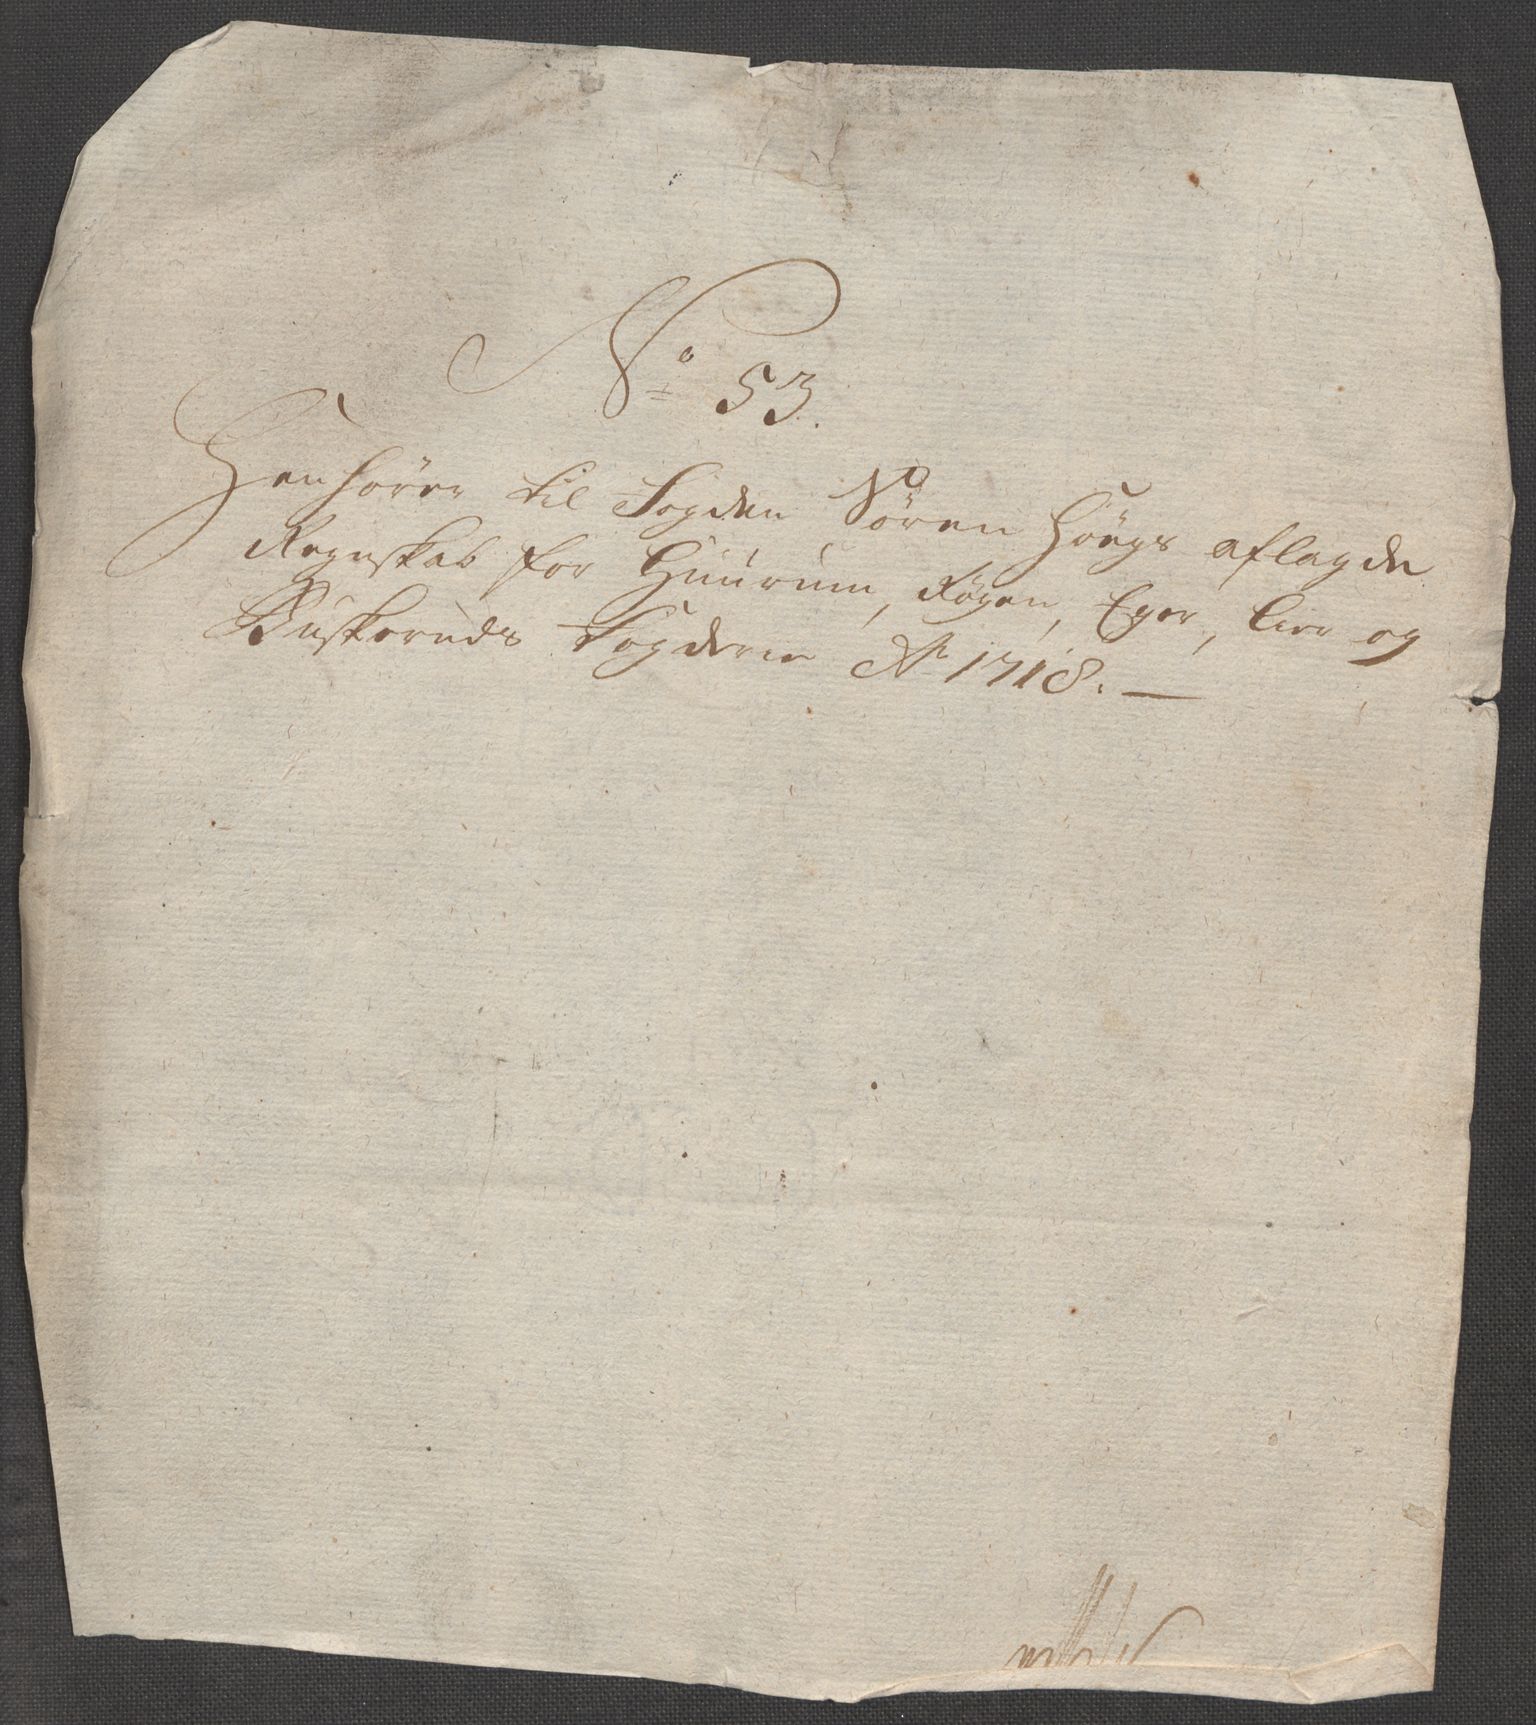 No 53.
Henhörer til Fogden Sören Höegs aflagde
Regnskab for Huurum, Rögen, Eger, Lier og
Buskeruds Fogderie Ao 1718. —